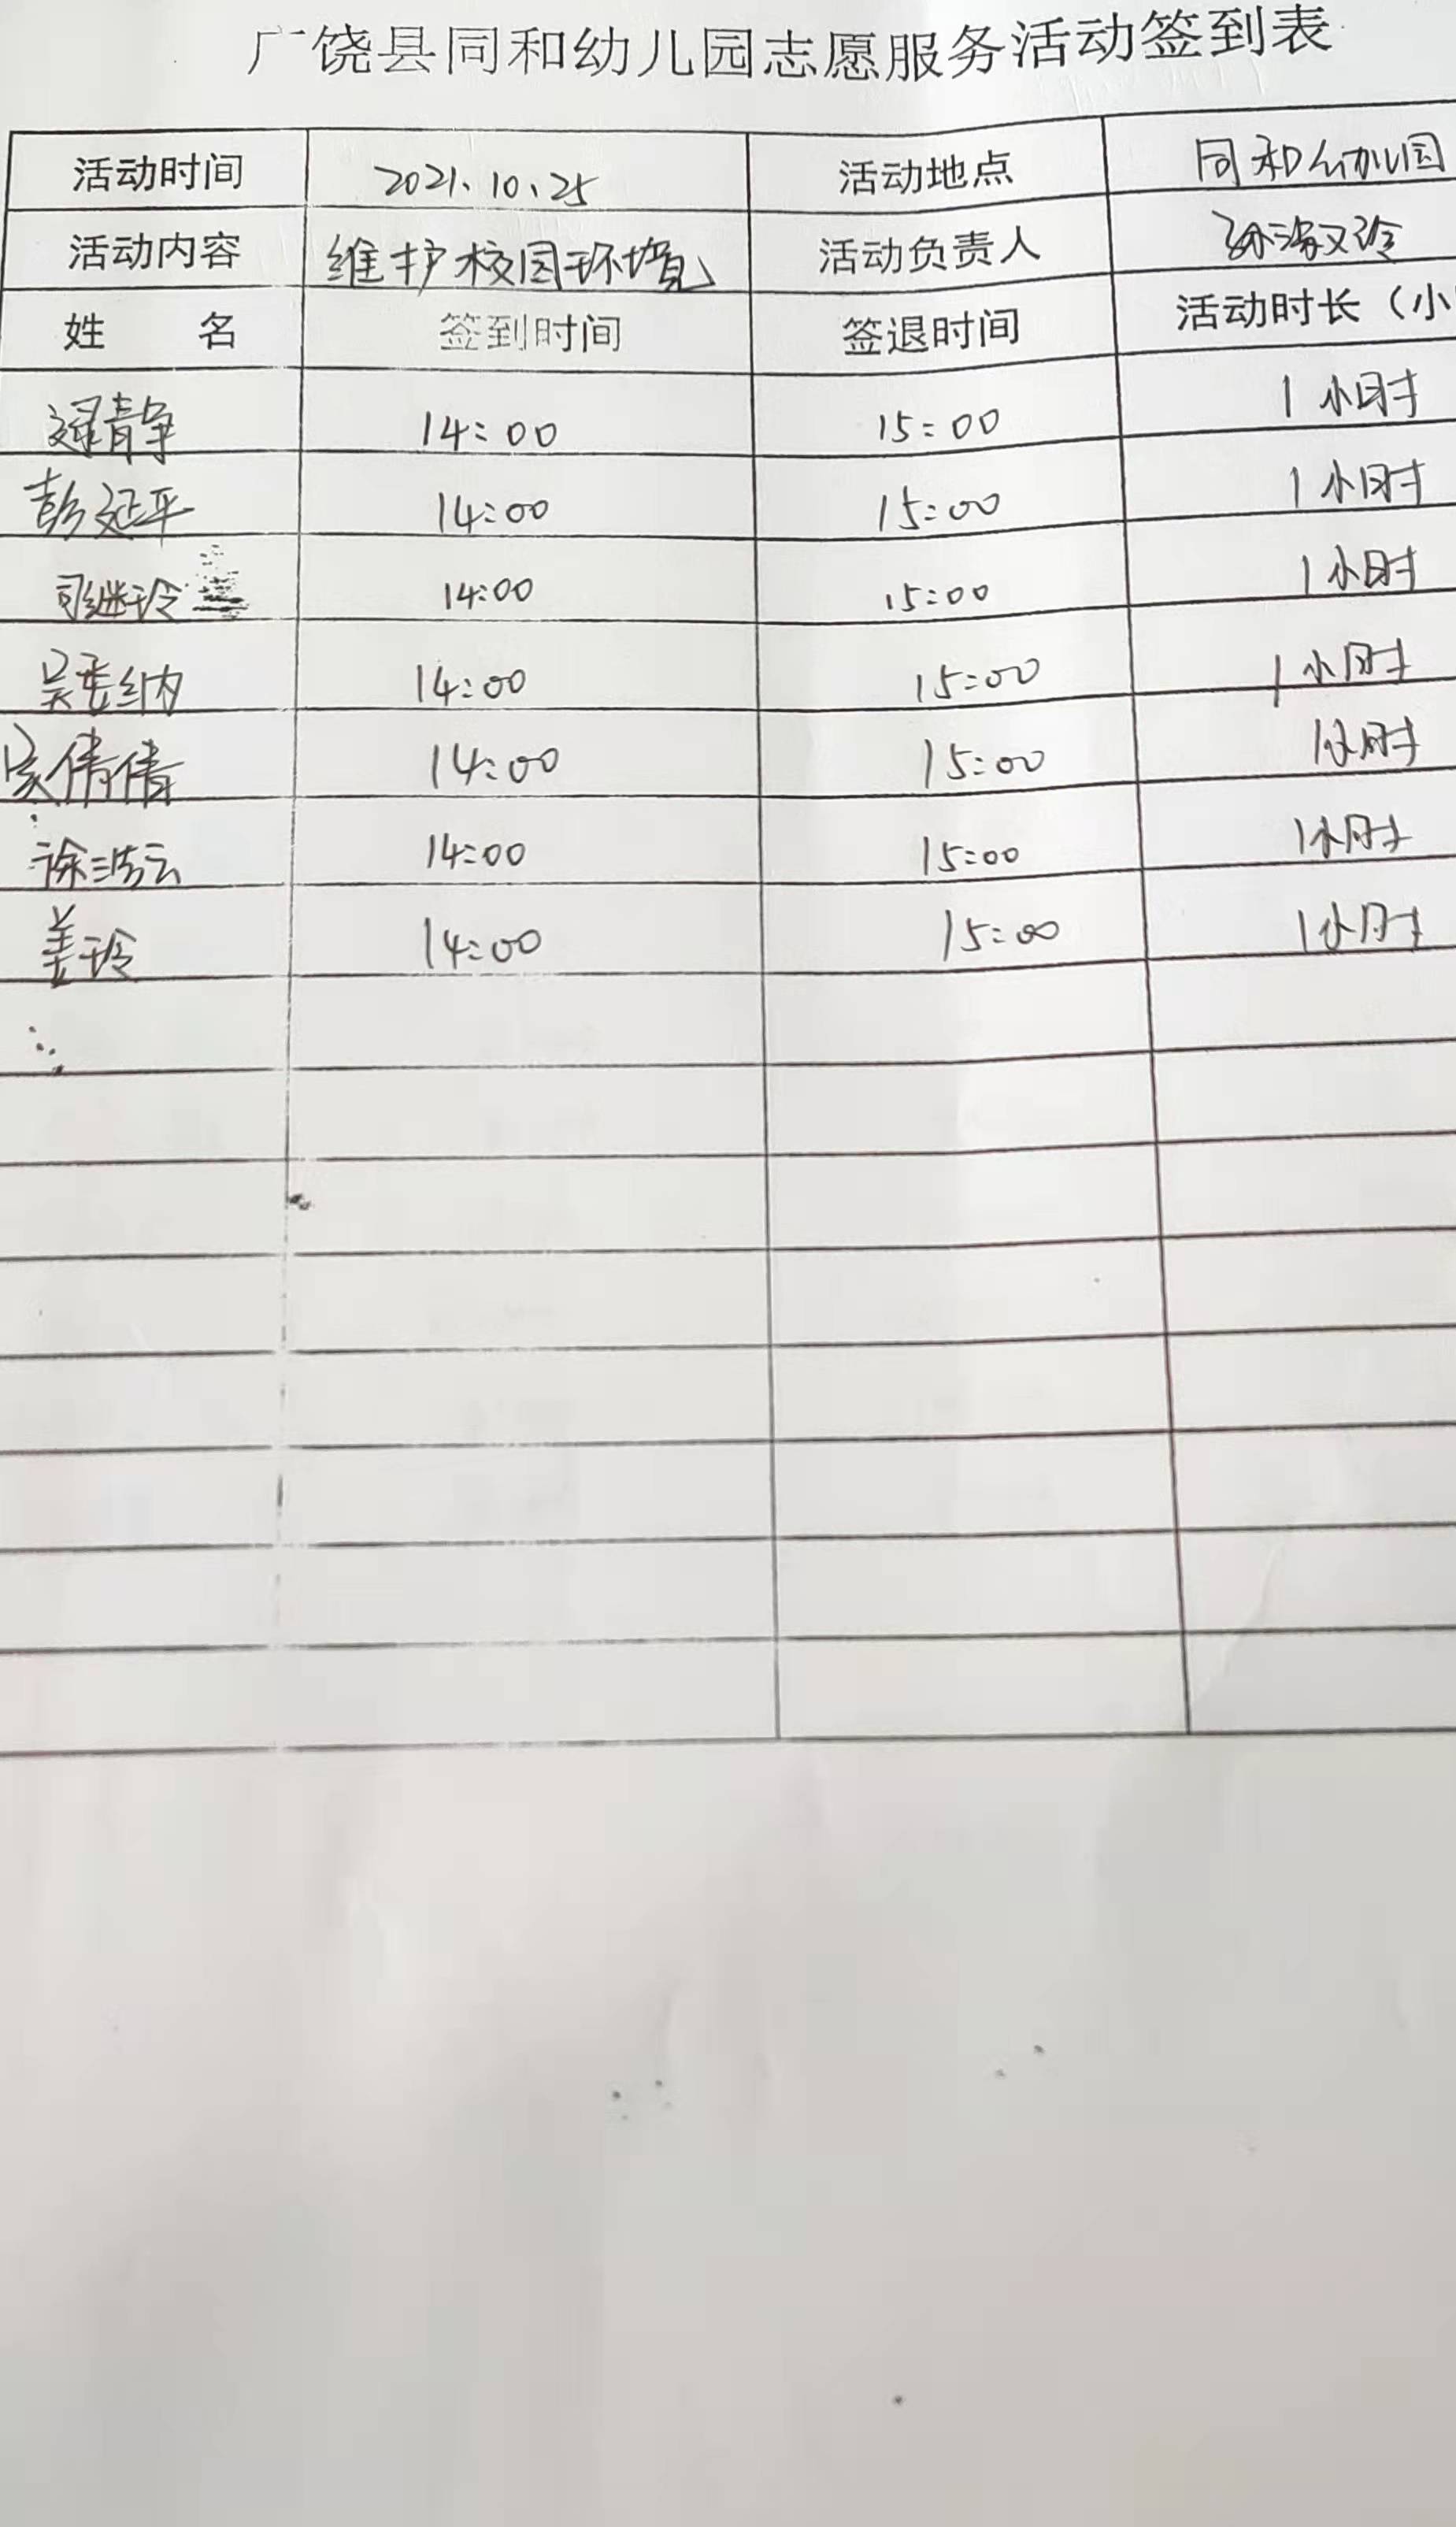 广饶县同和幼儿园志愿服务活动签到表
活动时间 2021.10.25 活动地点 同和幼儿园
活动内容 维护校园环境 活动负责人
姓 名 签到时间 签退时间 活动时长（小
禄青静 14:00 15:00 1小时
彭延平 14:00 15:00 1小时
司继玲 14:00 15:00 1小时
吴委纳 14:00 15:00 1小时
倩倩 14:00 15:00 1小时
徐浩云 14:00 15:00 1小时
姜玲 14:00 15:00 1小时